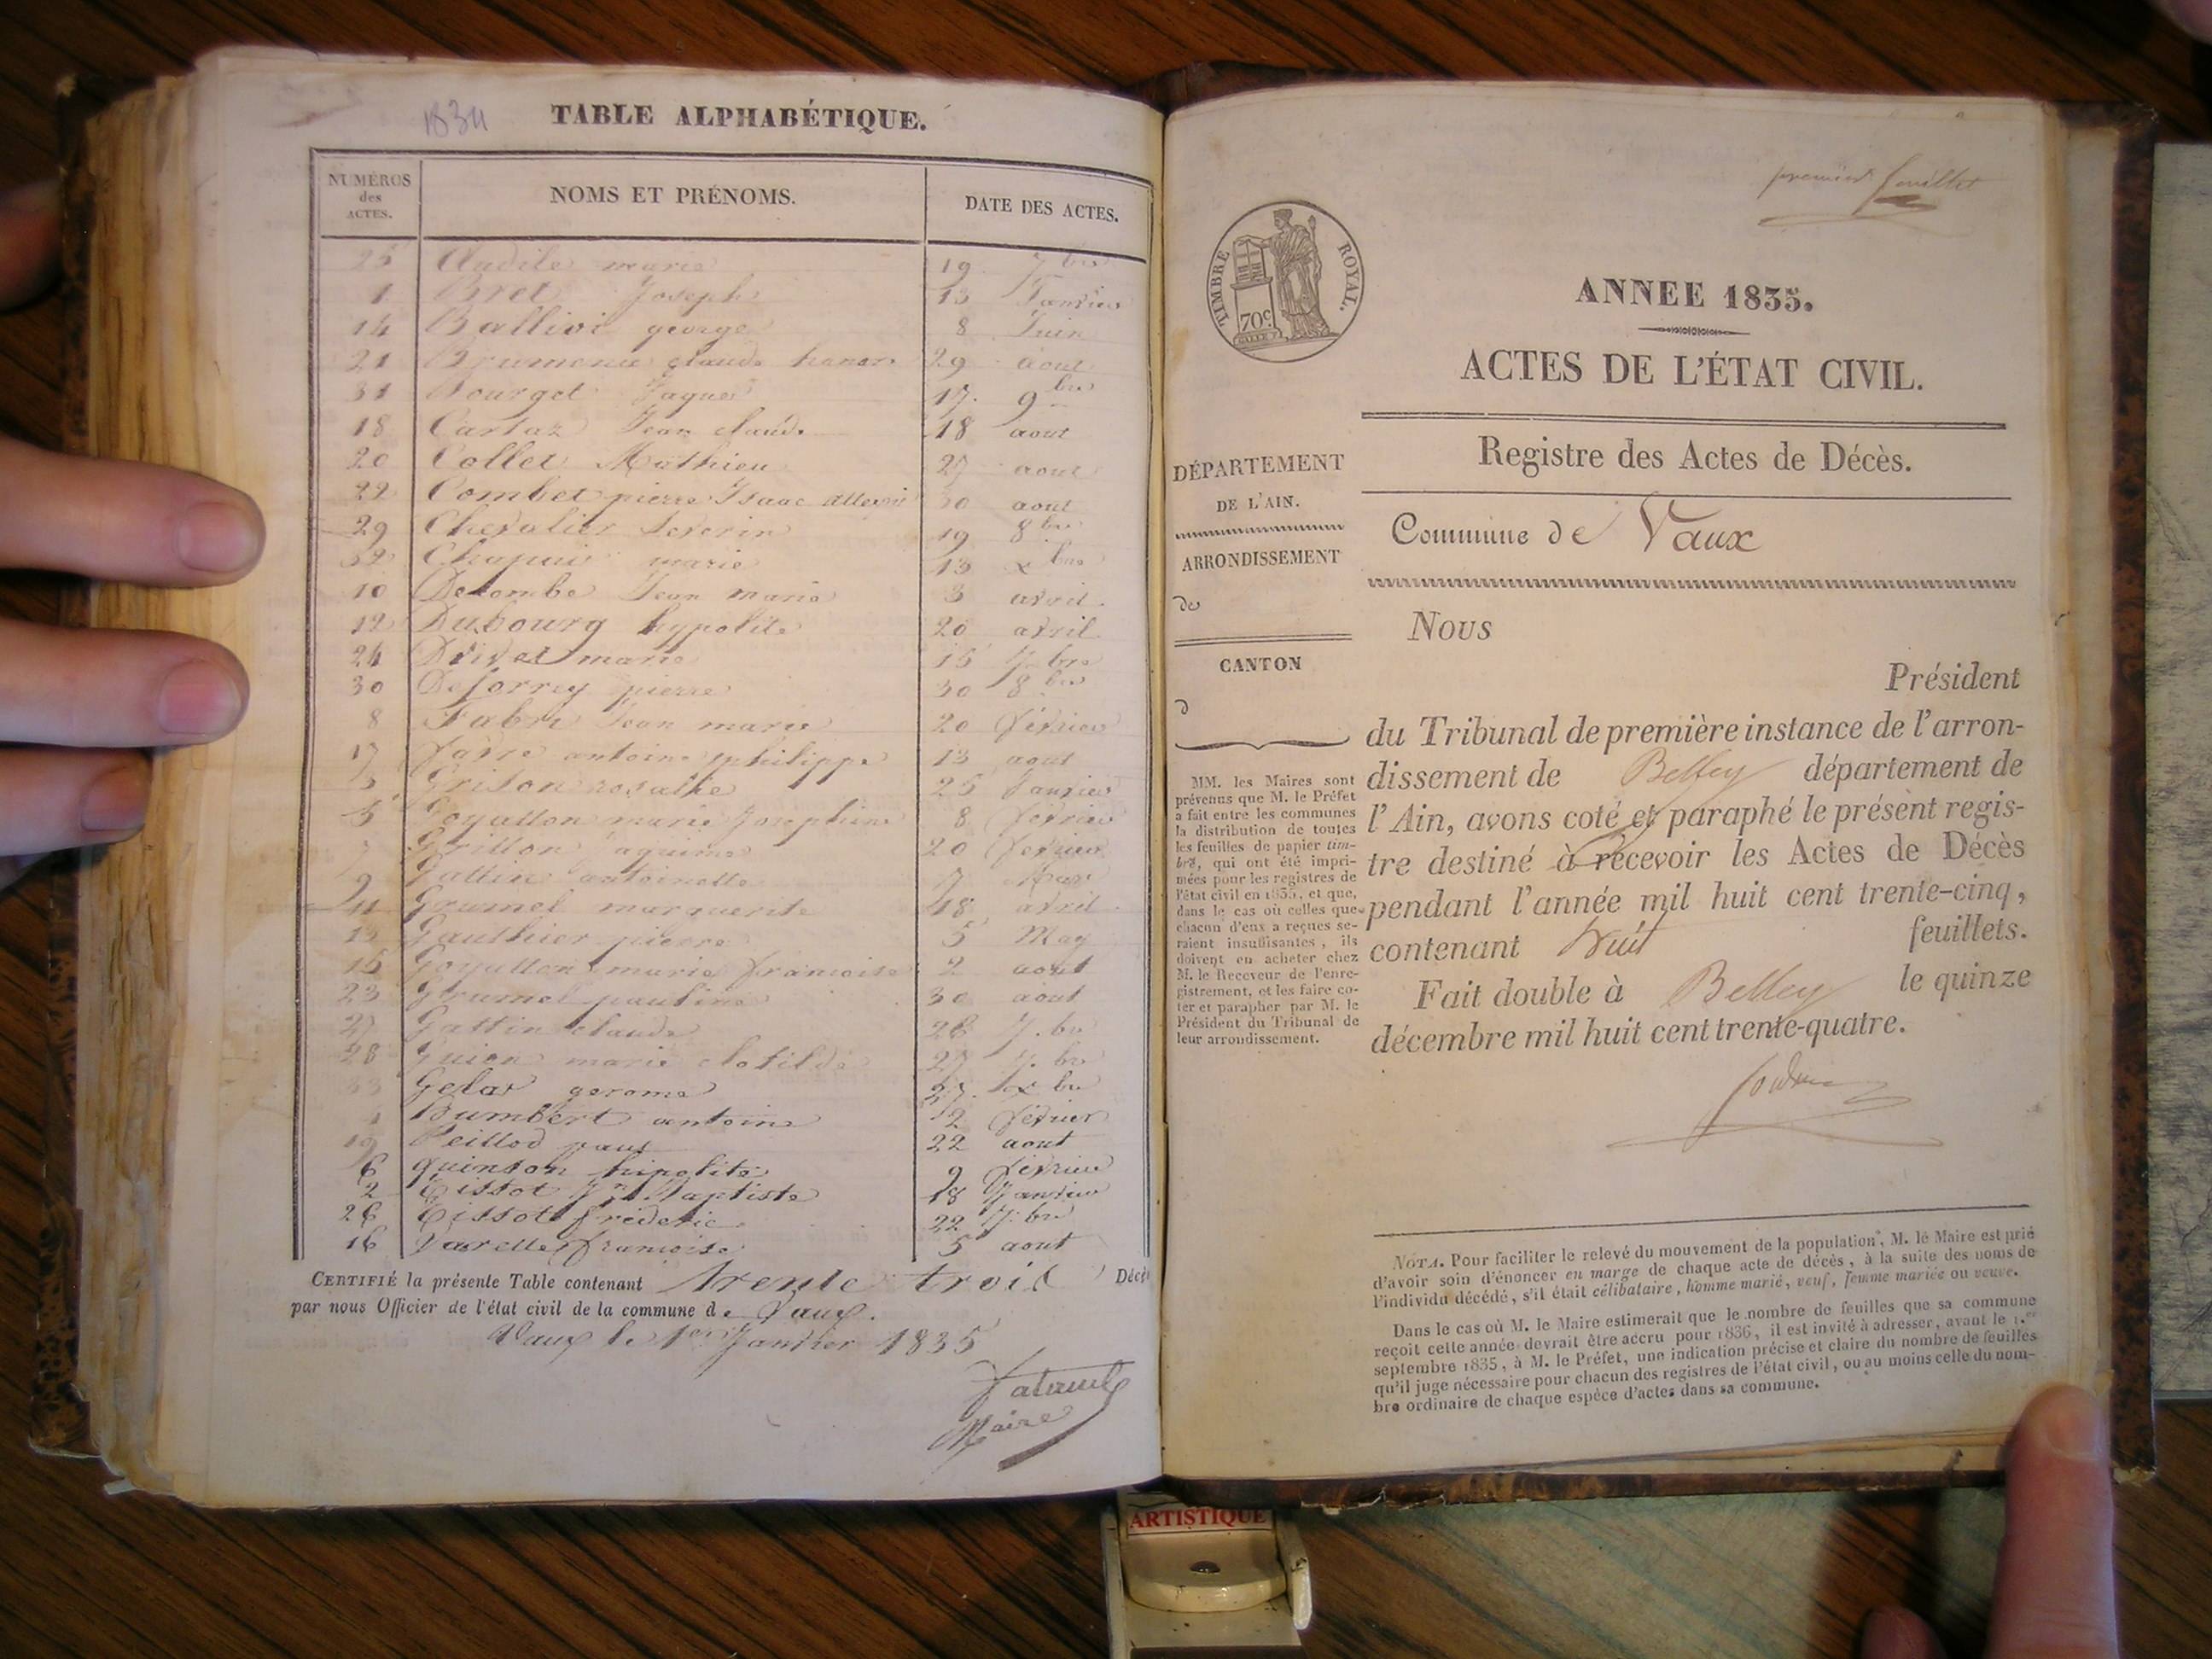 1834
TABLE ALPHABÉTIQUE.
NUMÉROS
des
ACTES.
NOMS ET PRÉNOMS.
DATE DES ACTES.
25 marie 19 7bre
1 Bret Joseph 13 Janvier
14 Ballivi george 8 Juin
21 claude 29 aout
31 Bourget Jaques 17. 9bre
18 Cartaz Jean claude 18 aout
20 Collet Mathieu 27 aout
22 Combet pierre Isaac 30 aout
29 Chevalier Severin 19 8bre
32 Chapuis marie 13 xbre
10 Decombe Jean marie 3 avril.
12 Dubourg hypolite 20 avril
24 Drivet marie 15 7bre
30 Deforrey pierre 30 8bre
8 Fabre Jean marie 20 février
17 favre antoine philippe 13 aout
3 Grison rosalie 25 Janvier
5 Goyatton marie Josephine 8 février
7 Grillon 20 février
9 Gattin antoinette 7 Mars
11 Grumel marguerite 18 avril
13 Gauthier pierre 5 May
15 Goyatton marie francoise 2 aout
23 Grumel pauline 30 aout
27 Gattin claude 26 7.bre
28 Guion marie clotilde 27 7.bre
33 Gelas gerome 27. xbre
4 Humbert antoine 2 février
19 Peillod paul 22 aout
6 quinson hipolite 9 février
2 Tissot Jn Baptiste 18 Janvier
26 Tissot frederic 22 7.bre
16 Varette francoise 5 aout
CERTIFIÉ la présente Table contenant trente trois Décès
par nous Officier de l'état civil de la commune de Vaux.
Vaux le 1er Janvier 1835
Maire
premier feuillet
TIMBRE ROYAL.
70c.
ANNEE 1835.
ACTES DE L'ÉTAT CIVIL.
Registre des Actes de Décès.
DÉPARTEMENT
DE L'AIN.
ARRONDISSEMENT
de
CANTON
d
Commune de Vaux
Nous
Président
du Tribunal de première instance de l'arron-
dissement de Belley département de
l'Ain, avons coté et paraphé le présent regis-
tre destiné à recevoir les Actes de Décès
pendant l'année mil huit cent trente-cinq,
contenant huit feuillets.
Fait double à Belley le quinze
décembre mil huit cent trente-quatre.
MM. les Maires sont
prévenus que M. le Préfet
a fait entre les communes
la distribution de toutes
les feuilles de papier tim-
bré, qui ont été impri-
mées pour les registres de
l'état civil en 1835, et que,
dans le cas où celles que
chacun d'eux a reçues se-
raient insuffisantes, ils
doivent en acheter chez
M. le Receveur de l'enre-
gistrement, et les faire co-
ter et parapher par M. le
Président du Tribunal de
leur arrondissement.
NOTA. Pour faciliter le relevé du mouvement de la population, M. le Maire est prié
d'avoir soin d'énoncer en marge de chaque acte de décès, à la suite des noms de
l'individu décédé, s'il était célibataire, homme marié, veuf, femme mariée ou veuve.
Dans le cas où M. le Maire estimerait que le nombre de feuilles que sa commune
reçoit cette année devrait être accru pour 1836, il est invité à adresser, avant le 1.er
septembre 1835, à M. le Préfet, une indication précise et claire du nombre de feuilles
qu'il juge nécessaire pour chacun des registres de l'état civil, ou au moins celle du nom-
bre ordinaire de chaque espèce d'actes dans sa commune.
ARTISTIQUE